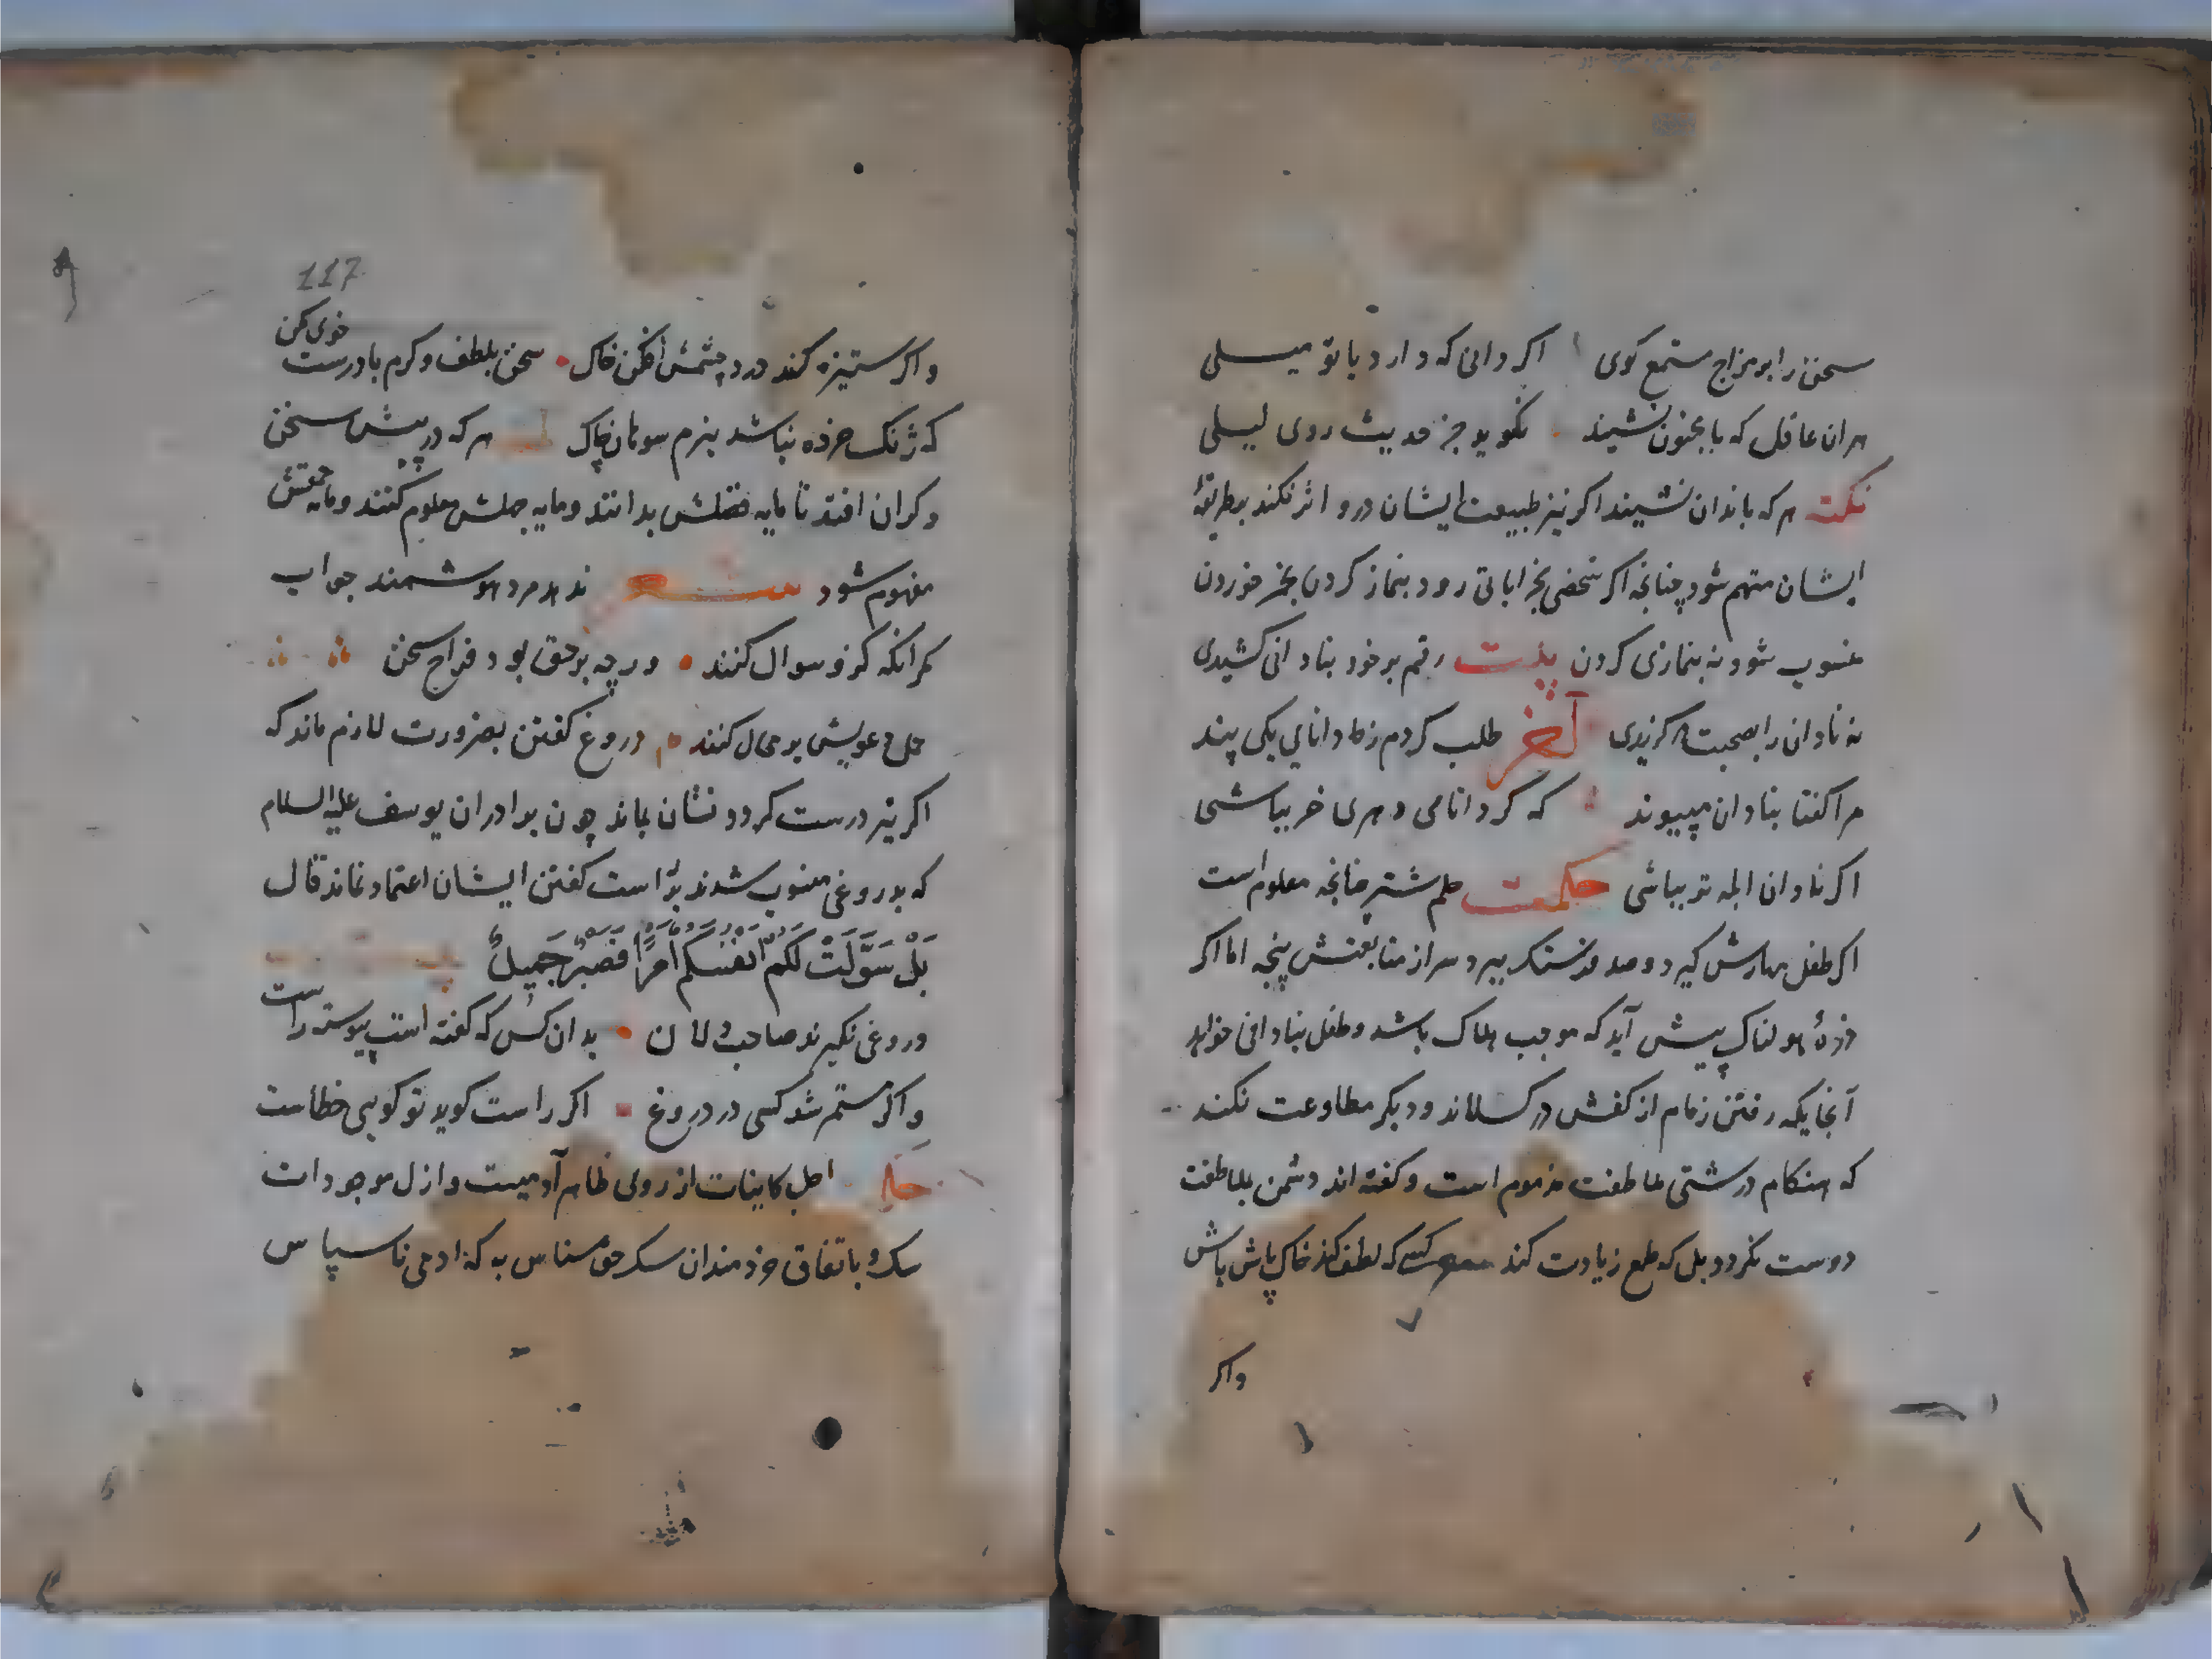 سخن را بر مزاج مستمع کوی اکر دانی که دارد با تو میلی
هران عاقل که با مجنون نشیند نکوید جز حدیث روی لیلی
نکت هر که با بدان نشیند اکر نیز طبیعت ایشان درو اثر نکند بطریقهٔ
ایشان متهم شود چنانچه اکر شخصی بخراباتی رود بنماز کردن بخمر خوردن
منسوب شود نه بنمازی کردن بیت رقم بر خود بنادانی کشیدی
که نادان را بصحبت برکزیدی آخر طلب کردم ز دانایی یکی پند
مرا کفتا بنادان مپیوند که کر دانای دهری خر بباشی
اکر نادان ابله تر بباشی حکمت حلم شتر چنانچه معلوم است
اکر طفل مهارش کیرد و صد فرسنک ببرد سر از متابعتش نپیچد اما اکر
درهٔ هولناک پیش آید که موجب هلاک باشد و طفل بنادانی خواهد
آنجایکه رفتن زمام از کفش در کسلاند و دیکر مطاوعت نکند
که هنکام درشتی ملاطفت مذموم است و کفته اند دشمن بملاطفت
دوست نکردد بل که طمع زیادت کند کسی که لطف کند خاک پاش باش
واکر
117
واکر ستیزه کند در دو چشمش افکن خاک سخن بلطف و کرم با درست خوی مکن
که ژنک خرده نباشد بنرم سوهان پاک هر که در پیش سخن
دکران افتد تا مایه فضلش بدانند و مایه جهلش معلوم کنند و مایه حمقش
مفهوم شود شعر ندهد مرد هوشمند جواب
مکر آنکه کزو سوال کنند ورچه بر حق بود فراخ سخن
حمل دعویش بر محال کنند دروغ کفتن بضرورت لازم ماند که
اکر نیز درست کردد نشان بماند چون برادران یوسف علیه السلام
که بدروغی منسوب شدند براست کفتن ایشان اعتماد نماند قال
بَلْ سَوَّلَتْ لَكُمْ اَنْفُسُكُمْ اَمْرًا فَصَبْرٌ جَمِيلٌ
دروغی نکیرند صاحب دلان بدان کس که کفته است پیوسته راست
واکر مستمر شد کسی در دروغ اکر راست کوید تو کویی خطاست
اجل کاینات از روی ظاهر آدمیست و اذل موجودات
سک و باتفاق خردمندان سک حق شناس به که آدمی ناسپاس